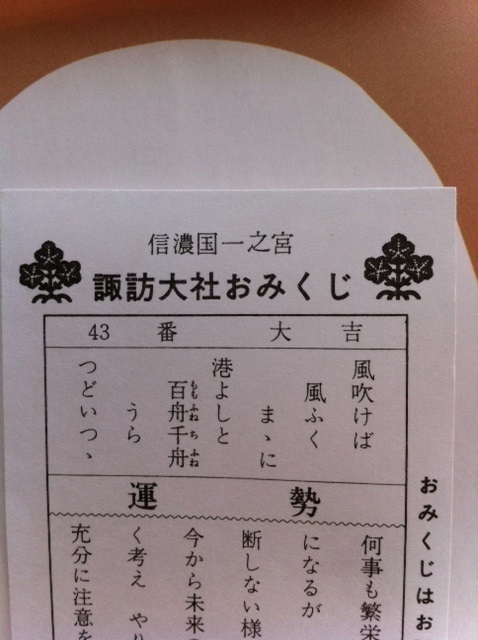 信濃国一之宮
諏訪大社おみくじ
43 番 大 吉
風吹けば
風ふく
まゝに
港よしと
百舟千舟
ももふねちふね
うら
つどいつゝ
運 勢
何事も繁栄
になるが
断しない様
今から未来
く考え やり
充分に注意を
おみくじはお